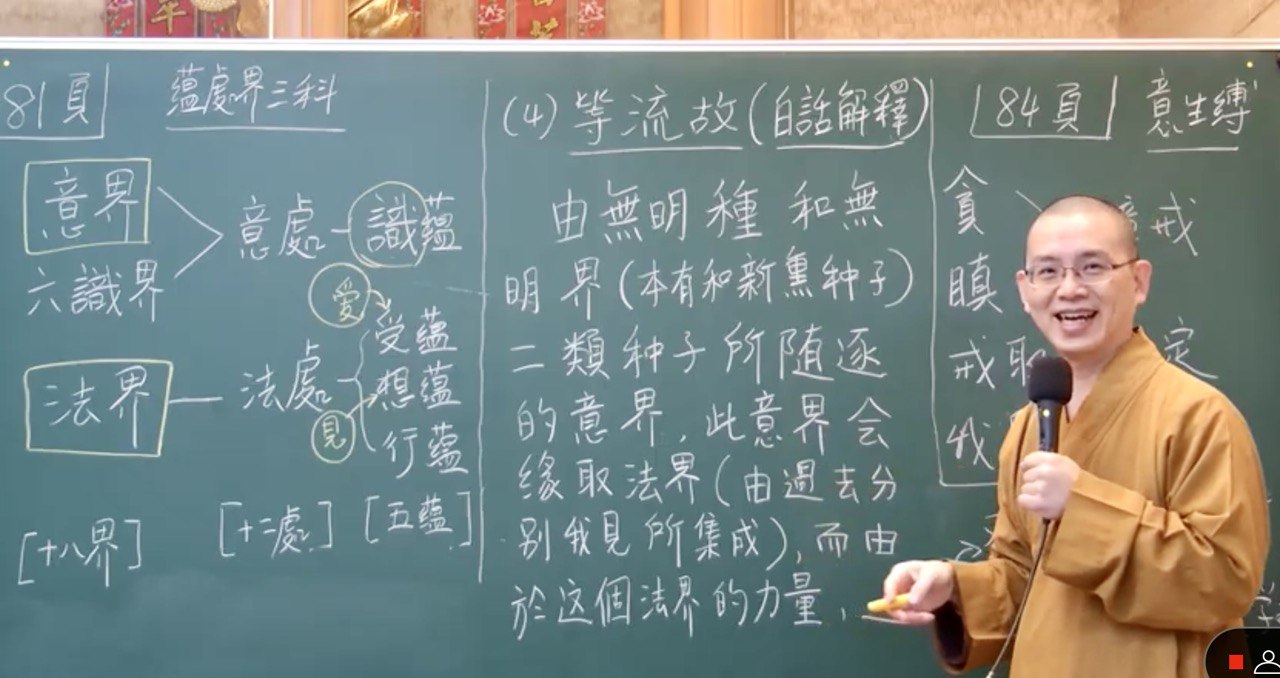 81頁
蘊處界三科
意界
六識界
意處
識蘊
愛
受蘊
法界
法處
想蘊
見
行蘊
[十八界]
[十二處]
[五蘊]
(4) 等流故(白話解釋)
由無明種和無
明界(本有和新熏种子)
二類种子所随逐
的意界,此意界会
缘取法界(由過去分
別我見所集成),而由
於这個法界的力量,
84頁
意生縛
貪
戒
瞋
戒取
定
我